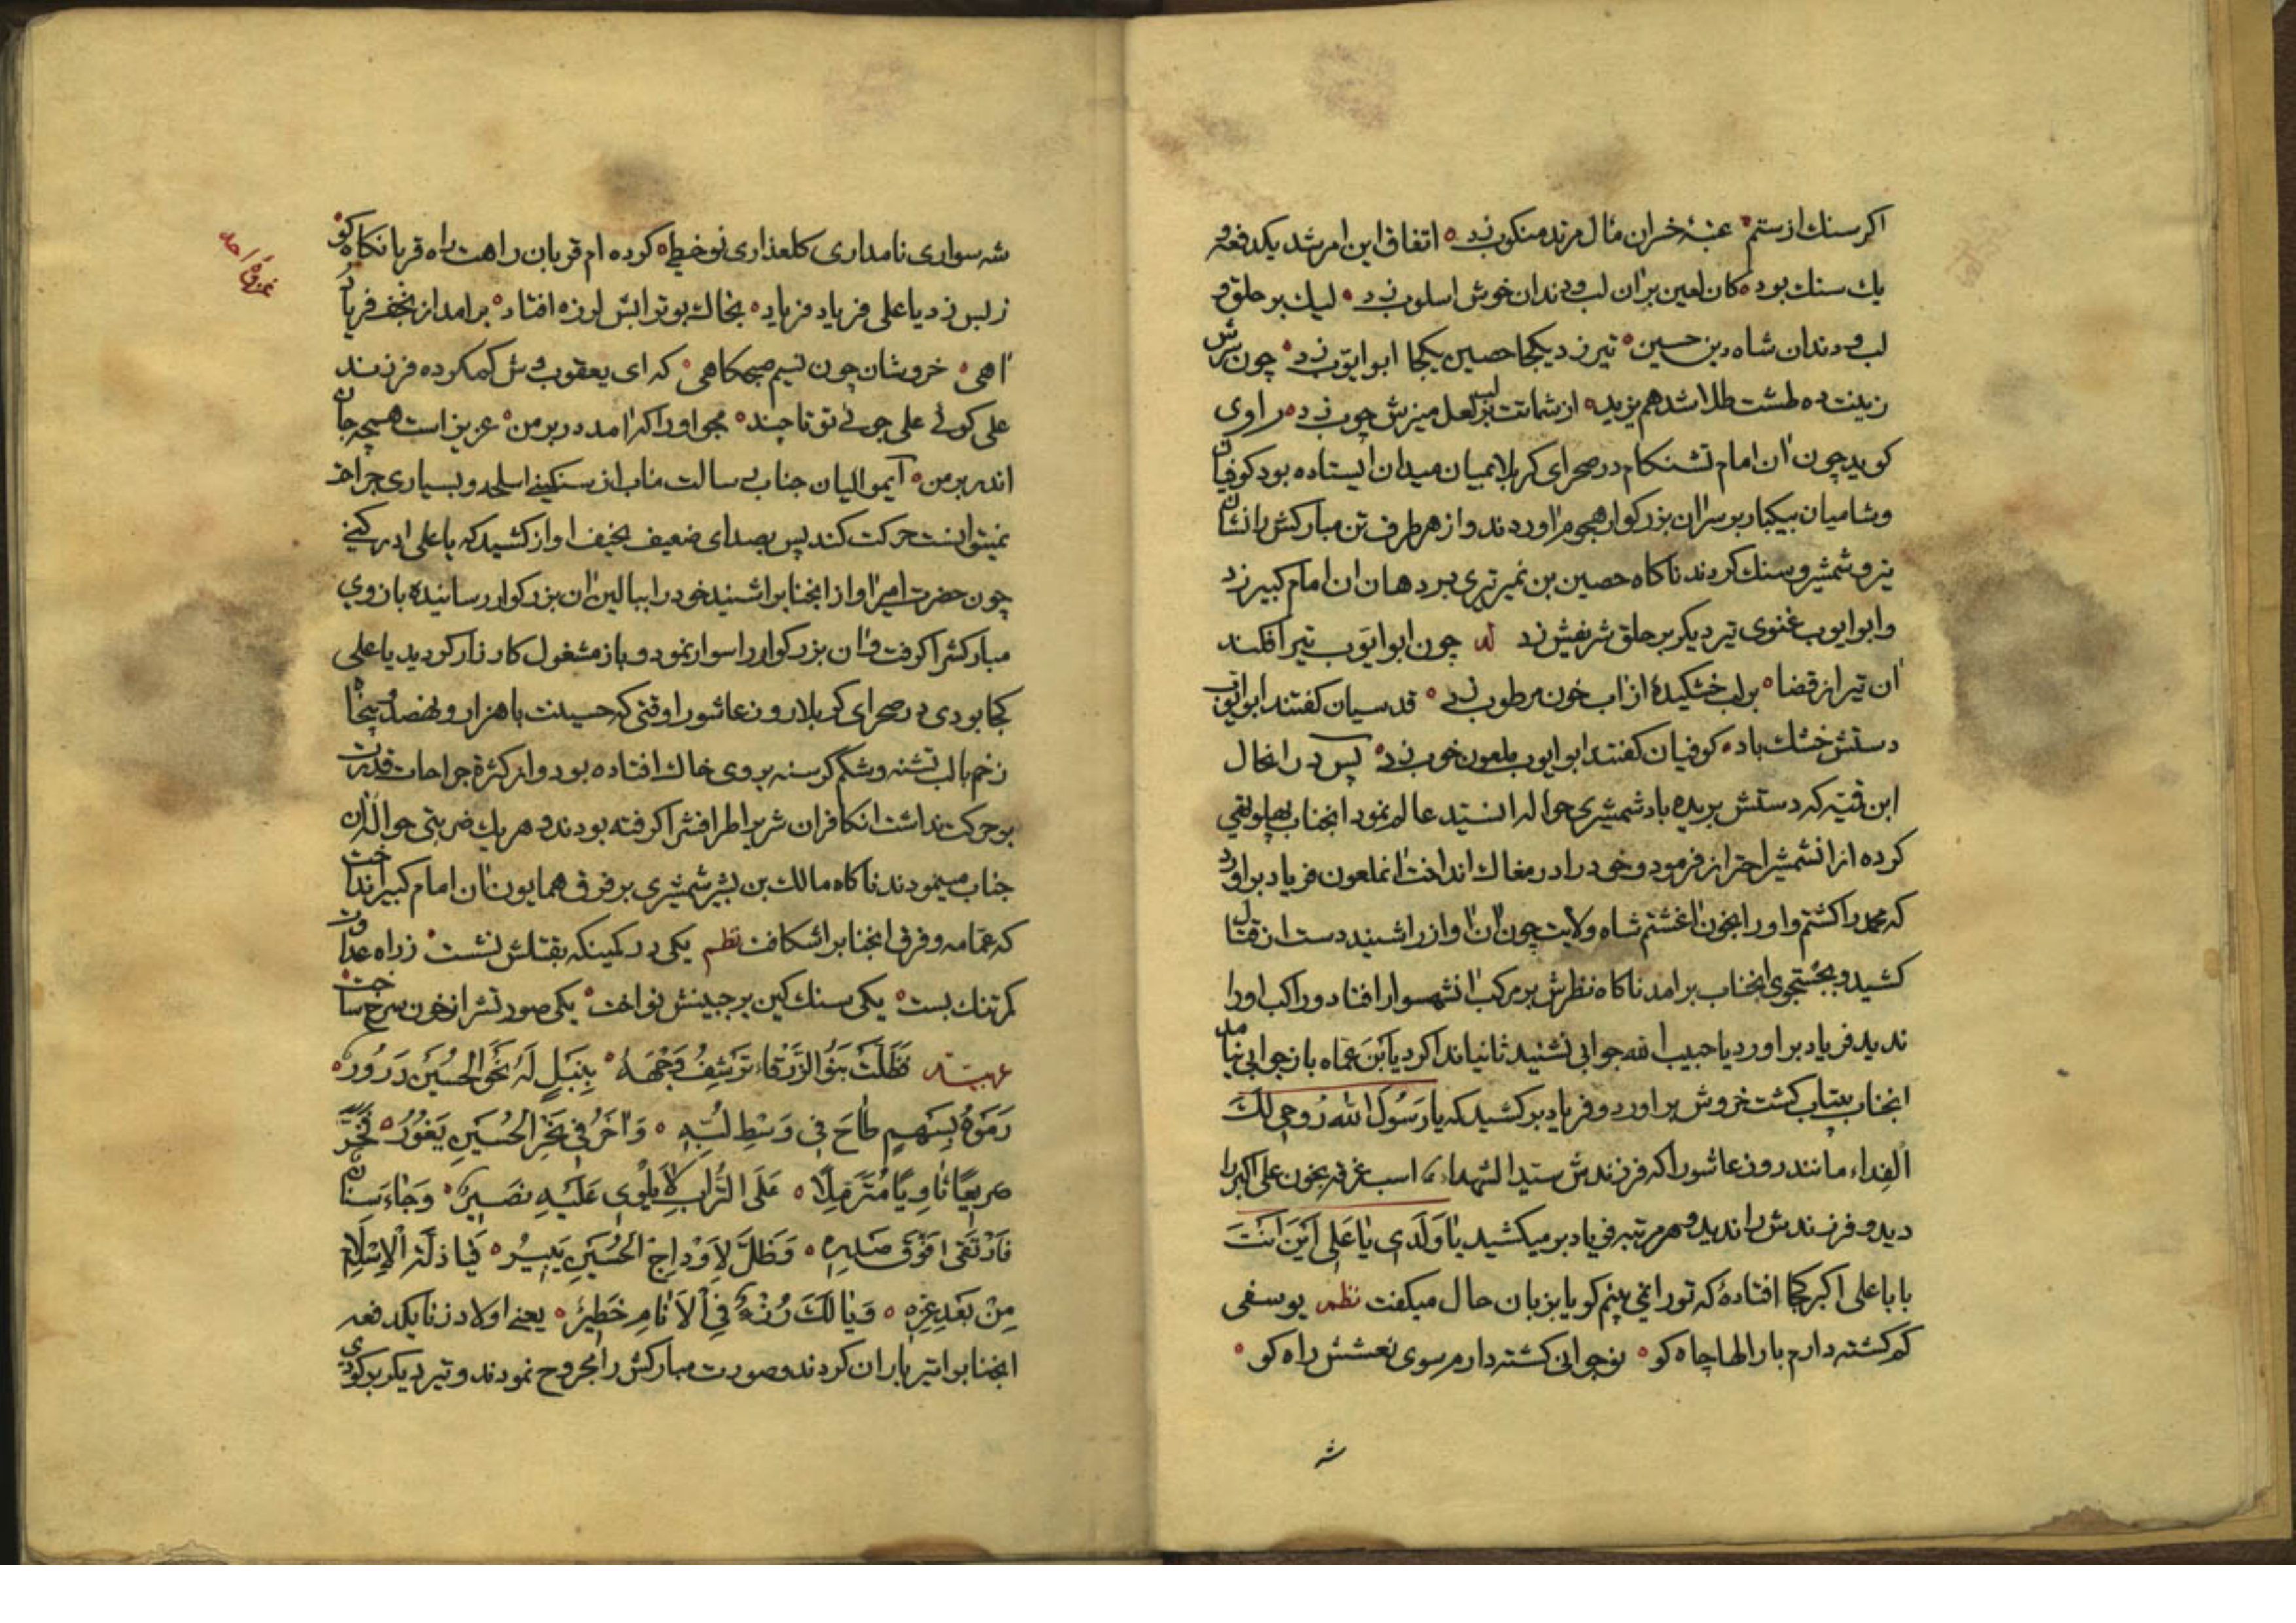 اکر سنك از ستم عنبۀ خسران مآل مرتد منکوب زد اتفاق این امر شد یکدفعه و
یك سنك بود کان لعین بران لب و دندان خوش اسلوب زد لیك بر حلق و
لب و دندان شاه دین حسین تیر زد یکجا حصین یکجا ابوایّوب زد چون سرش
زینت ده طشت طلا شد هم یزید از شماتت بر لب لعل میزش چوب زد راوی
کوید چون ان امام تشنکام در صحرای کربلا بمیان میدان ایستاده بود کوفیان
و شامیان بیکبار بر سر ان بزرکوار هجوم اوردند و از هر طرف تن مبارکش را نشان
تیر و شمشیر و سنك کردند ناکاه حصین بن نمیر تیری بر دهان ان امام کبیر زد
و ابوایوب غنوی تیر دیکر بر حلق شریفش زد له چون ابوایّوب تیر افکند
ان تیر از قضا بر لب خشکیدۀ از اب خون مرطوب زد قدسیان کفتند ابوایوب
دستش خشك باد کوفیان کفتند ابوایوب ملعون خوب زد پس در انحال
ابن قمیئه که دستش بریده باد شمشیری حواله انسیّد عالم نمود انجناب پهلو تهی
کرده از انشمشیر احتراز فرمود و خود را در مغاك انداخت انملعون فریاد براورد
که محمد را کشتم و او را بخون اغشتم شاه ولایت چون ان اواز را شنید دست از قتال
کشید و بجستجوی انجناب برامد ناکاه نظرش بر مرکب انشهسوار افتاد و راکب او را
ندید فریاد براورد یا حبیب الله جوابی نشنید ثانیا ندا کرد یابن عمّاه باز جوابی نیامد
انجناب بیتاب کشت خروش براورد و فریاد برکشید که یا رَسُولَ الله رُوحی لَكَ
الفِداء مانند روز عاشورا که فرزندش سیّد الشهداء ع اسب غرقه بخون علی اکبر را
دید و فرزندش را ندید و هر مرتبه فریاد بر میکشید یا وَلَدی یا عَلی اَینَ اَنتَ
بابا علی اکبر کجا افتادۀ که تو را نمی بینم کویا بزبان حال میکفت نظم یوسفی
کم کشته دارم بارالها چاه کو نوجوانی کشته دارم سوی نعشش راه کو
شه
شه سواری نامداری کلعذاری نوخطی کرده ام قربان راهت راه قربانکاه کو
ز بس زد یا علی فریاد فریاد بخاك بوترابش لرزه افتاد برامد از نجف فریاد
اهی خروشان چون نسیم صبحکاهی که ای یعقوب وش کم کرده فرزند
علی کوئی علی جوئی تو تا چند مجو او را که امد در بر من عزیز است همچو جان
اندر بر من آیموالیان جناب رسالت ماب از سنکینی اسلحه و بسیاری جراحت
نمیتوانست حرکت کند پس بصدای ضعیف نحیف اواز کشید که یا علی ادرکنی
چون حضرت امیر اواز انجنابرا شنید خود را ببالین ان بزرکوار رسانیده بازوی
مبارکشرا کرفت و ان بزرکوار را سوار نمود و باز مشغول کارزار کردید یا علی
کجا بودی در صحرای کربلا روز عاشورا وقتی که حسینت با هزار و نهصد و پنجاه
زخم با لب تشنه و شکم کرسنه بر وی خاك افتاده بود و از کثرة جراحات قدرت
بر حرکت نداشت انکافران شریر اطرافشرا کرفته بودند و هر یك ضربتی حواله ان
جناب مینمودند ناکاه مالك بن بشیر شمشیری بر فرق همایون ان امام کبیر انداخت
که عمّامه و فرق انجنابرا شکافت نظم یکی در کمینکه بقتلش نشست ز راه عداوت
کمر تنك بست یکی سنك کین بر جبینش نواخت یکی صورتش را ز خون سرخ ساخت
عربیّه فَظَلَّتْ بَنُو الزَّرْقاءِ تَرْشِفُ وَجْهَهُ بِنَبْلٍ لَهُ نَحْوَ الْحُسَیْنِ دَرُورٌ
رَمَوْهُ بِسَهْمٍ طاحَ فی وَسْطِ لُبِّهِ وَ اٰخَرُ فی نَحْرِ الْحُسَیْنِ یَغُورُ فَخَرَّ
صَریعًا ثاوِیًا مُتَرَمِّلًا عَلَی التُّرابِ لا یَلْوی عَلَیْهِ نَصیرٌ وَ جاءَ سِنانٌ
فَارْتَقی فَوْقَ صَدْرِهِ وَ ظَلَّ لِاَوْداجِ الْحُسَیْنِ یَبیرُ فَیا ذِلَّةَ الْاِسْلامِ
مِنْ بَعْدِ عِزِّهِ وَ یا لَكَ رُزْءٌ فِی الْاَنامِ خَطیرٌ یعنی اولاد زنا یکدفعه
انجنابرا تیر باران کردند و صورت مبارکش را مجروح نمودند و تیر دیکر بر کودی
غزوۀ احد